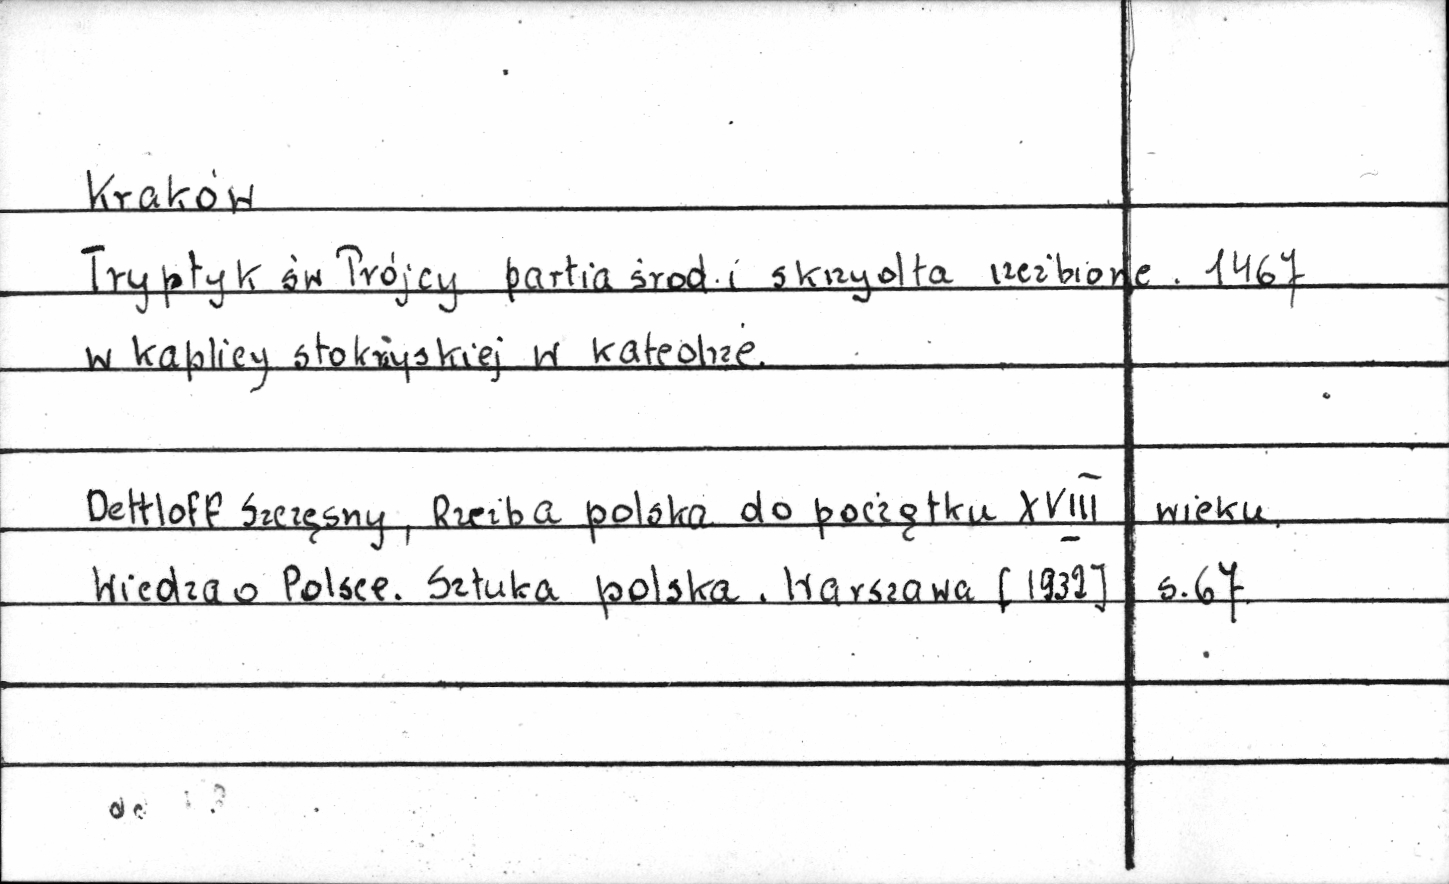 Kraków
Tryptyk św Trójcy partia środ. i skrzydła rzeźbione. 1467
w kaplicy stokrzyskiej w katedrze.
Dettloff Szczęsny, Rzeźba polska do początku XVIII wieku.
Wiedza o Polsce. Sztuka polska. Warszawa [1932] s. 67